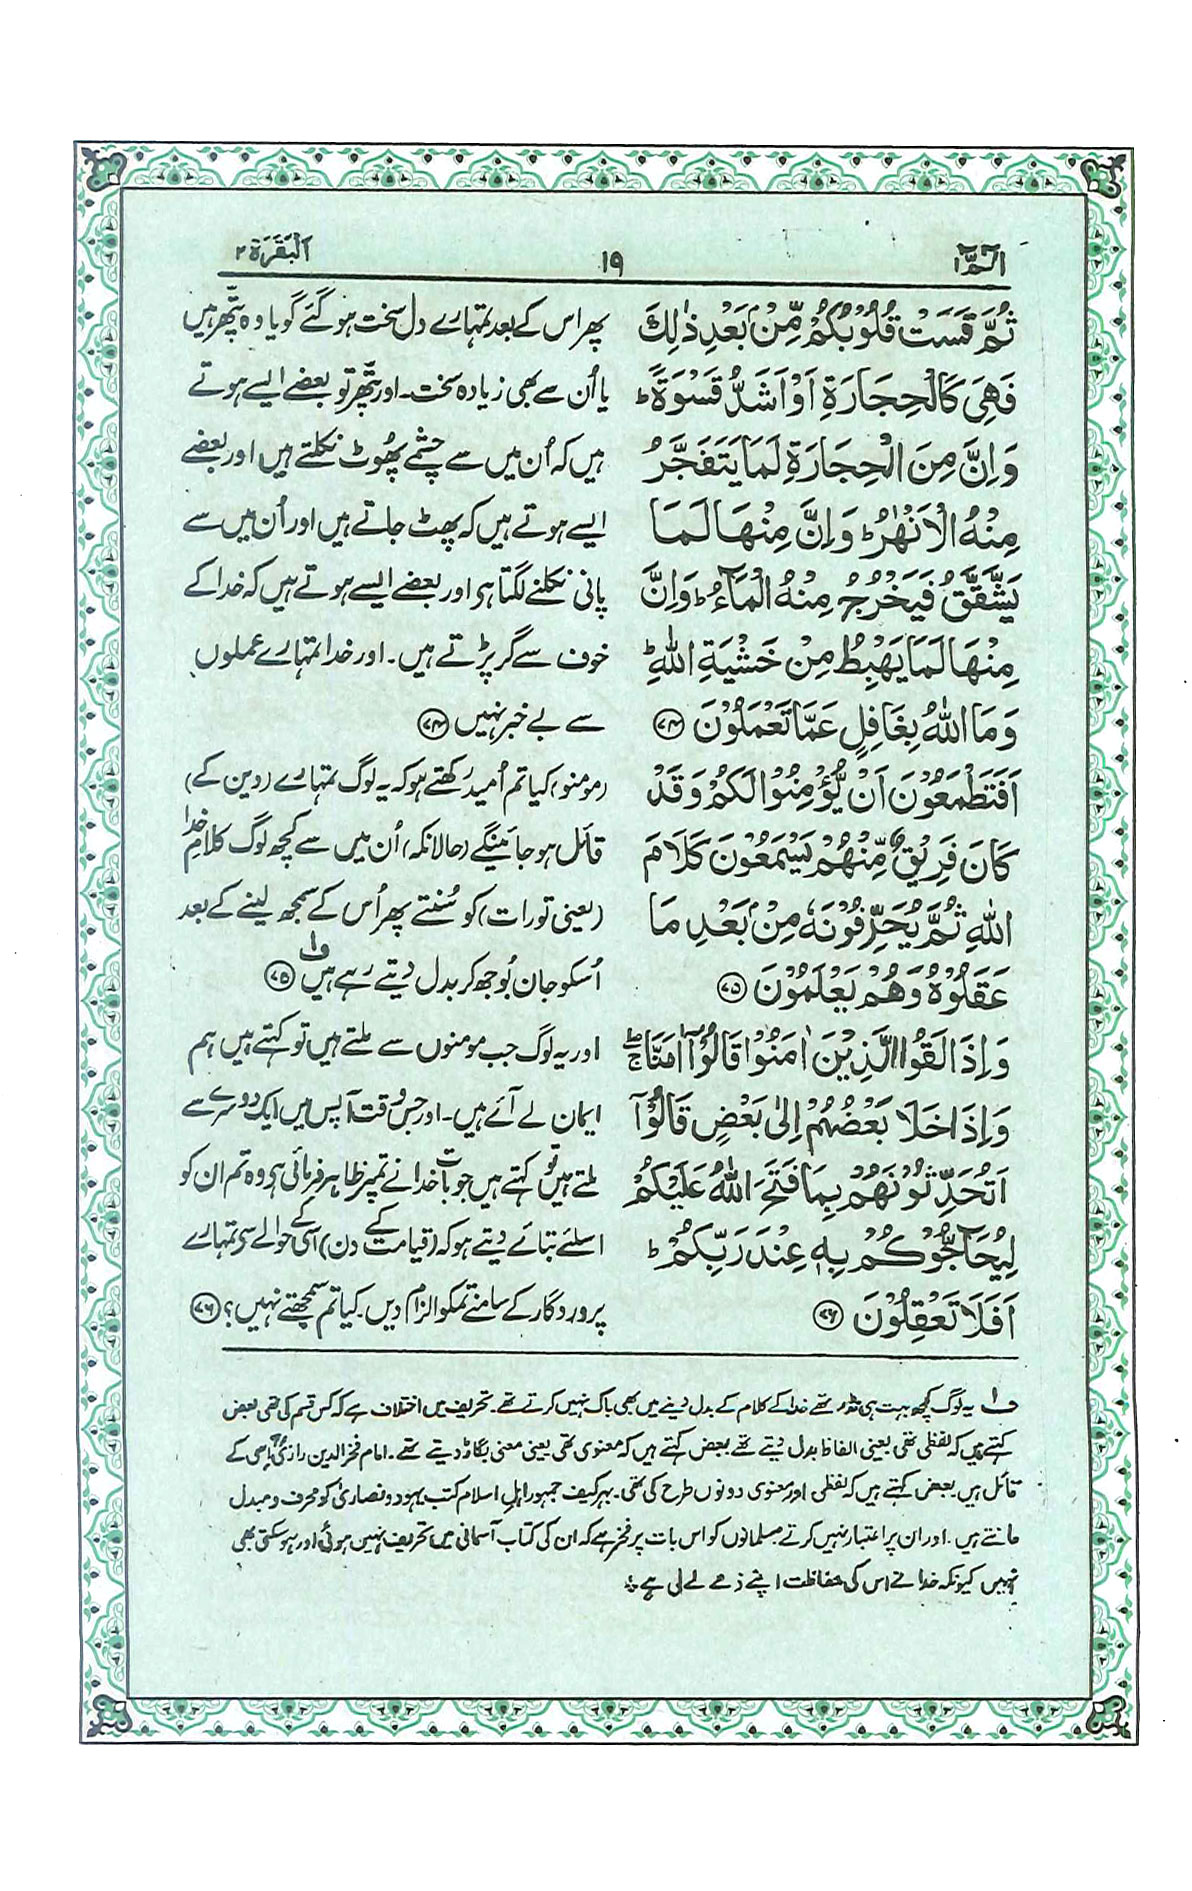 الٓمّٓ ١
١٩
اَلْبَقَرَة ٢
ثُمَّ قَسَتْ قُلُوْبُكُمْ مِّنْۢ بَعْدِ ذٰلِكَ
فَهِيَ كَالْحِجَارَةِ اَوْ اَشَدُّ قَسْوَةً ؕ
وَاِنَّ مِنَ الْحِجَارَةِ لَمَا يَتَفَجَّرُ
مِنْهُ الْاَنْهٰرُ ؕ وَاِنَّ مِنْهَا لَمَا
يَشَّقَّقُ فَيَخْرُجُ مِنْهُ الْمَآءُ ؕ وَاِنَّ
مِنْهَا لَمَا يَهْبِطُ مِنْ خَشْيَةِ اللّٰهِ ؕ
وَمَا اللّٰهُ بِغَافِلٍ عَمَّا تَعْمَلُوْنَ ۝۷۴
اَفَتَطْمَعُوْنَ اَنْ يُّؤْمِنُوْا لَكُمْ وَقَدْ
كَانَ فَرِيْقٌ مِّنْهُمْ يَسْمَعُوْنَ كَلَامَ
اللّٰهِ ثُمَّ يُحَرِّفُوْنَهٗ مِنْۢ بَعْدِ مَا
عَقَلُوْهُ وَهُمْ يَعْلَمُوْنَ ۝۷۵
وَاِذَا لَقُوا الَّذِيْنَ اٰمَنُوْا قَالُوْٓا اٰمَنَّا ۚۖ
وَاِذَا خَلَا بَعْضُهُمْ اِلٰى بَعْضٍ قَالُوْٓا
اَتُحَدِّثُوْنَهُمْ بِمَا فَتَحَ اللّٰهُ عَلَيْكُمْ
لِيُحَآجُّوْكُمْ بِهٖ عِنْدَ رَبِّكُمْ ؕ
اَفَلَا تَعْقِلُوْنَ ۝۷۶
پھر اس کے بعد تمہارے دل سخت ہو گئے گویا وہ پتھر ہیں
یا اُن سے بھی زیادہ سخت۔ اور پتھر تو بعضے ایسے ہوتے
ہیں کہ اُن میں سے چشمے پھُوٹ نکلتے ہیں اور بعضے
ایسے ہوتے ہیں کہ پھٹ جاتے ہیں اور اُن میں سے
پانی نکلنے لگتا ہی اور بعضے ایسے ہوتے ہیں کہ خدا کے
خوف سے گر پڑتے ہیں۔ اور خدا تمہارے عملوں
سے بے خبر نہیں ۝۷۴
(مومنو) کیا تم اُمید رکھتے ہو کہ یہ لوگ تمہارے (دین کے)
قائل ہو جائینگے (حالانکہ) اُن میں سے کچھ لوگ کلامِ خدا
(یعنی تورات) کو سُنتے پھر اُس کے سمجھ لینے کے بعد
اُسکو جان بُوجھ کر بدل دیتے رہے ہیں ف۱ ۝۷۵
اور یہ لوگ جب مومنوں سے ملتے ہیں تو کہتے ہیں ہم
ایمان لے آئے ہیں۔ اور جس وقت آپس میں ایک دوسرے سے
ملتے ہیں تو کہتے ہیں جو بات خدا نے تمپر ظاہر فرمائی ہی وہ تم ان کو
اسلئے بتائے دیتے ہو کہ (قیامت کے دن) اُسی کے حوالے سی تمہارے
پروردگار کے سامنے تمکو الزام دیں۔ کیا تم سمجھتے نہیں؟ ۝۷۶
ف۱ یہ لوگ کچھ بہت ہی نڈر تھے خدا کے کلام کے بدل دینے میں بھی باک نہیں کرتے تھے۔ تحریف میں اختلاف ہے کہ کس قسم کی تھی بعض
کہتے ہیں کہ لفظی تھی یعنی الفاظ بدل دیتے تھے بعض کہتے ہیں کہ معنوی تھی یعنی معنی بگاڑ دیتے تھے۔ امام فخر الدین رازیؒ اِسی کے
قائل ہیں بعض کہتے ہیں کہ لفظی اور معنوی دونوں طرح کی تھی۔ بہرکیف جمہور اہلِ اسلام کتب یہود و نصاریٰ کو محرف و مبدل
مانتے ہیں۔ اور ان پر اعتبار نہیں کرتے مسلمانوں کو اس بات پر فخر ہے کہ ان کی کتاب آسمانی میں تحریف نہیں ہوئی اور ہو سکتی بھی
نہیں کیونکہ خدا نے اس کی حفاظت اپنے ذمے لے لی ہے ؛